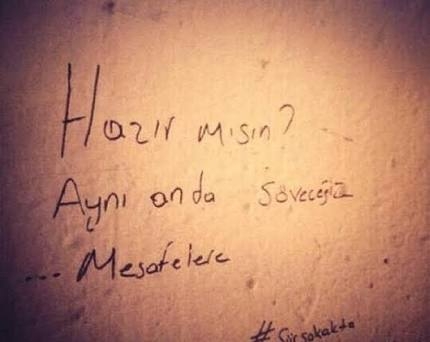 Hazır mısın?
Aynı anda söveceğiz
... Mesafelere
#şiirsokakta